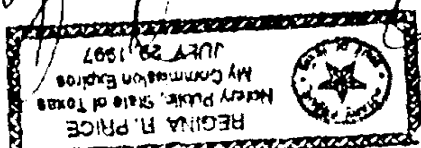 REGINA H. PRICE
Notary Public, State of Texas
My Commission Expires
JULY 29, 1997